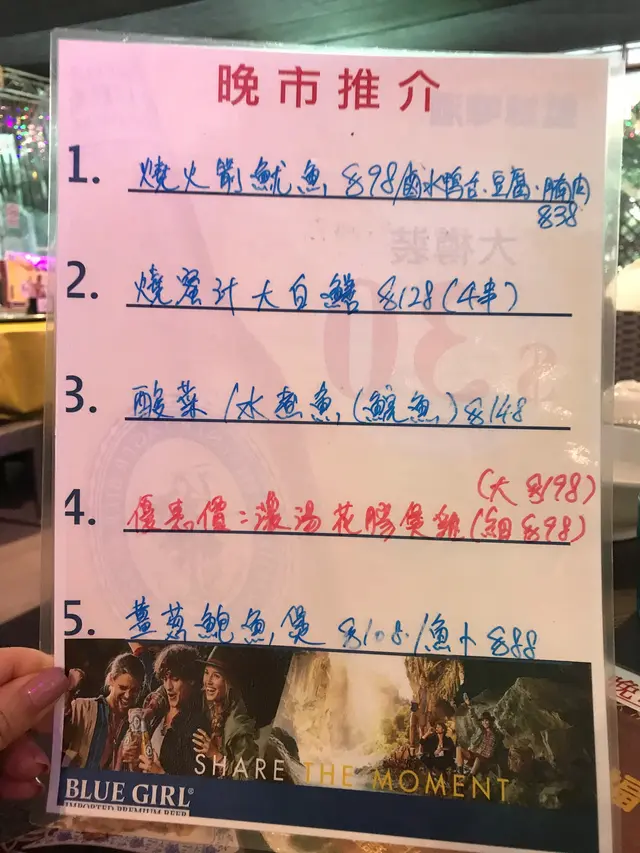 晚市推介
1. 燒火箭魷魚 $98/鹵水鴨舌、豆腐、腩肉
$38
2. 燒蜜汁大白鱔 $128(4串)
3. 酸菜/水煮魚(鯇魚)$148
(大 $198)
4. 優惠價:濃湯花膠煲雞(細 $98)
5. 薑蔥鮑魚煲 $108/魚卜 $88
SHARE THE MOMENT
BLUE GIRL
IMPORTED PREMIUM BEER